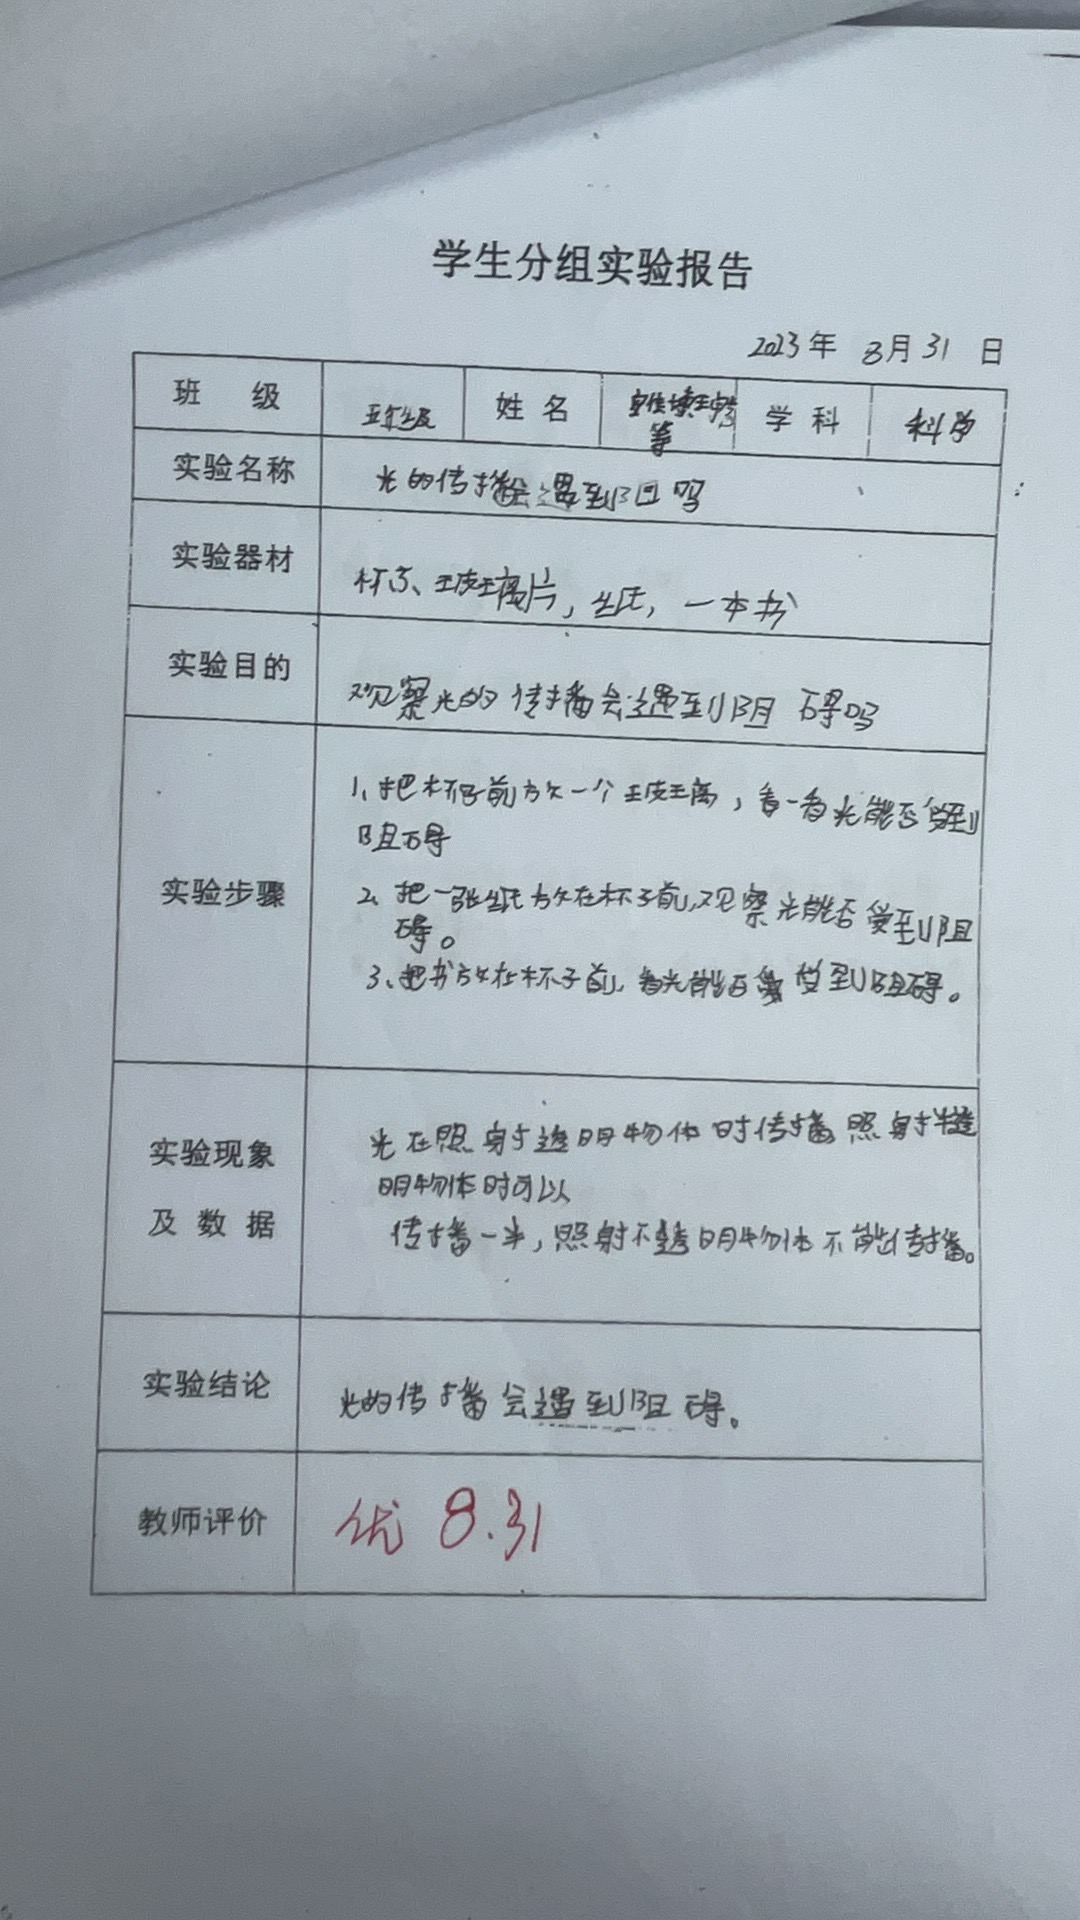 学生分组实验报告
2023年 8月31 日
班 级 五年级 姓 名 学 科 科学
等
实验名称 光的传播会遇到阻吗
实验器材 杯子、玻璃片，纸，一本书
实验目的 观察光的传播会遇到阻碍吗
1、把杯子前放一个玻璃，看一看光能否受到
阻碍
实验步骤 2、把一张纸放在杯子前，观察光能否受到阻
碍。
3、把书放在杯子前，看光能否受到阻碍。
实验现象 光在照射透明物体时传播，照射半透
明物体时可以
及 数 据 传播一半，照射不透明物体不能传播。
实验结论 光的传播会遇到阻碍。
教师评价 优 8.31